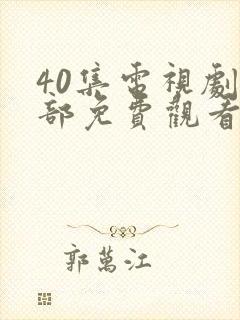 40集電視劇
部免費觀看
郭萬江